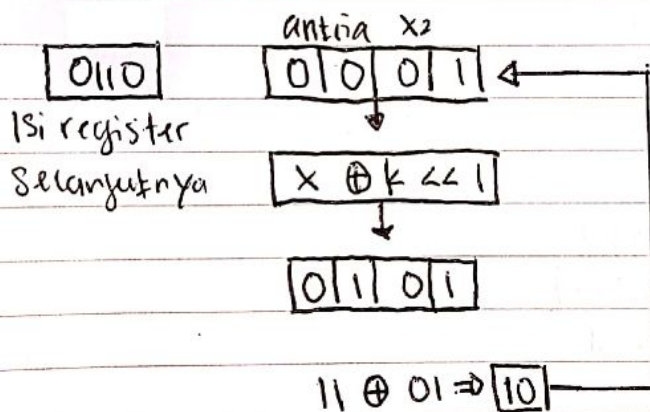 antria x2
0110 0 0 0 1
Isi register
Selanjutnya x ⊕ k << 1
0 1 0 1
11 ⊕ 01 ⇒ 10